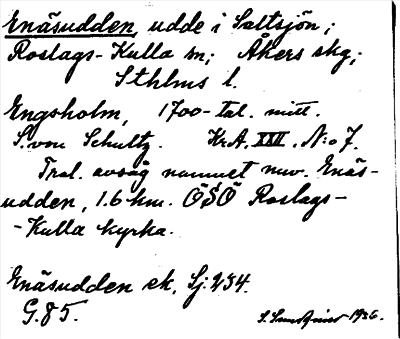 Enäsudden, udde i Saltsjön;
Roslags-Kulla sn; Åkers skg;
Sthlms l.
Engsholm, 1700-tal. mitt.
S. von Schultz. Kr.A. XXII. N:o 7.
Trol. avsåg namnet nuv. Enäs-
udden, 1.6 km. ÖSÖ Roslags-
-Kulla kyrka.
Enäsudden ek. Sj. 254.
G. 85.
1936.